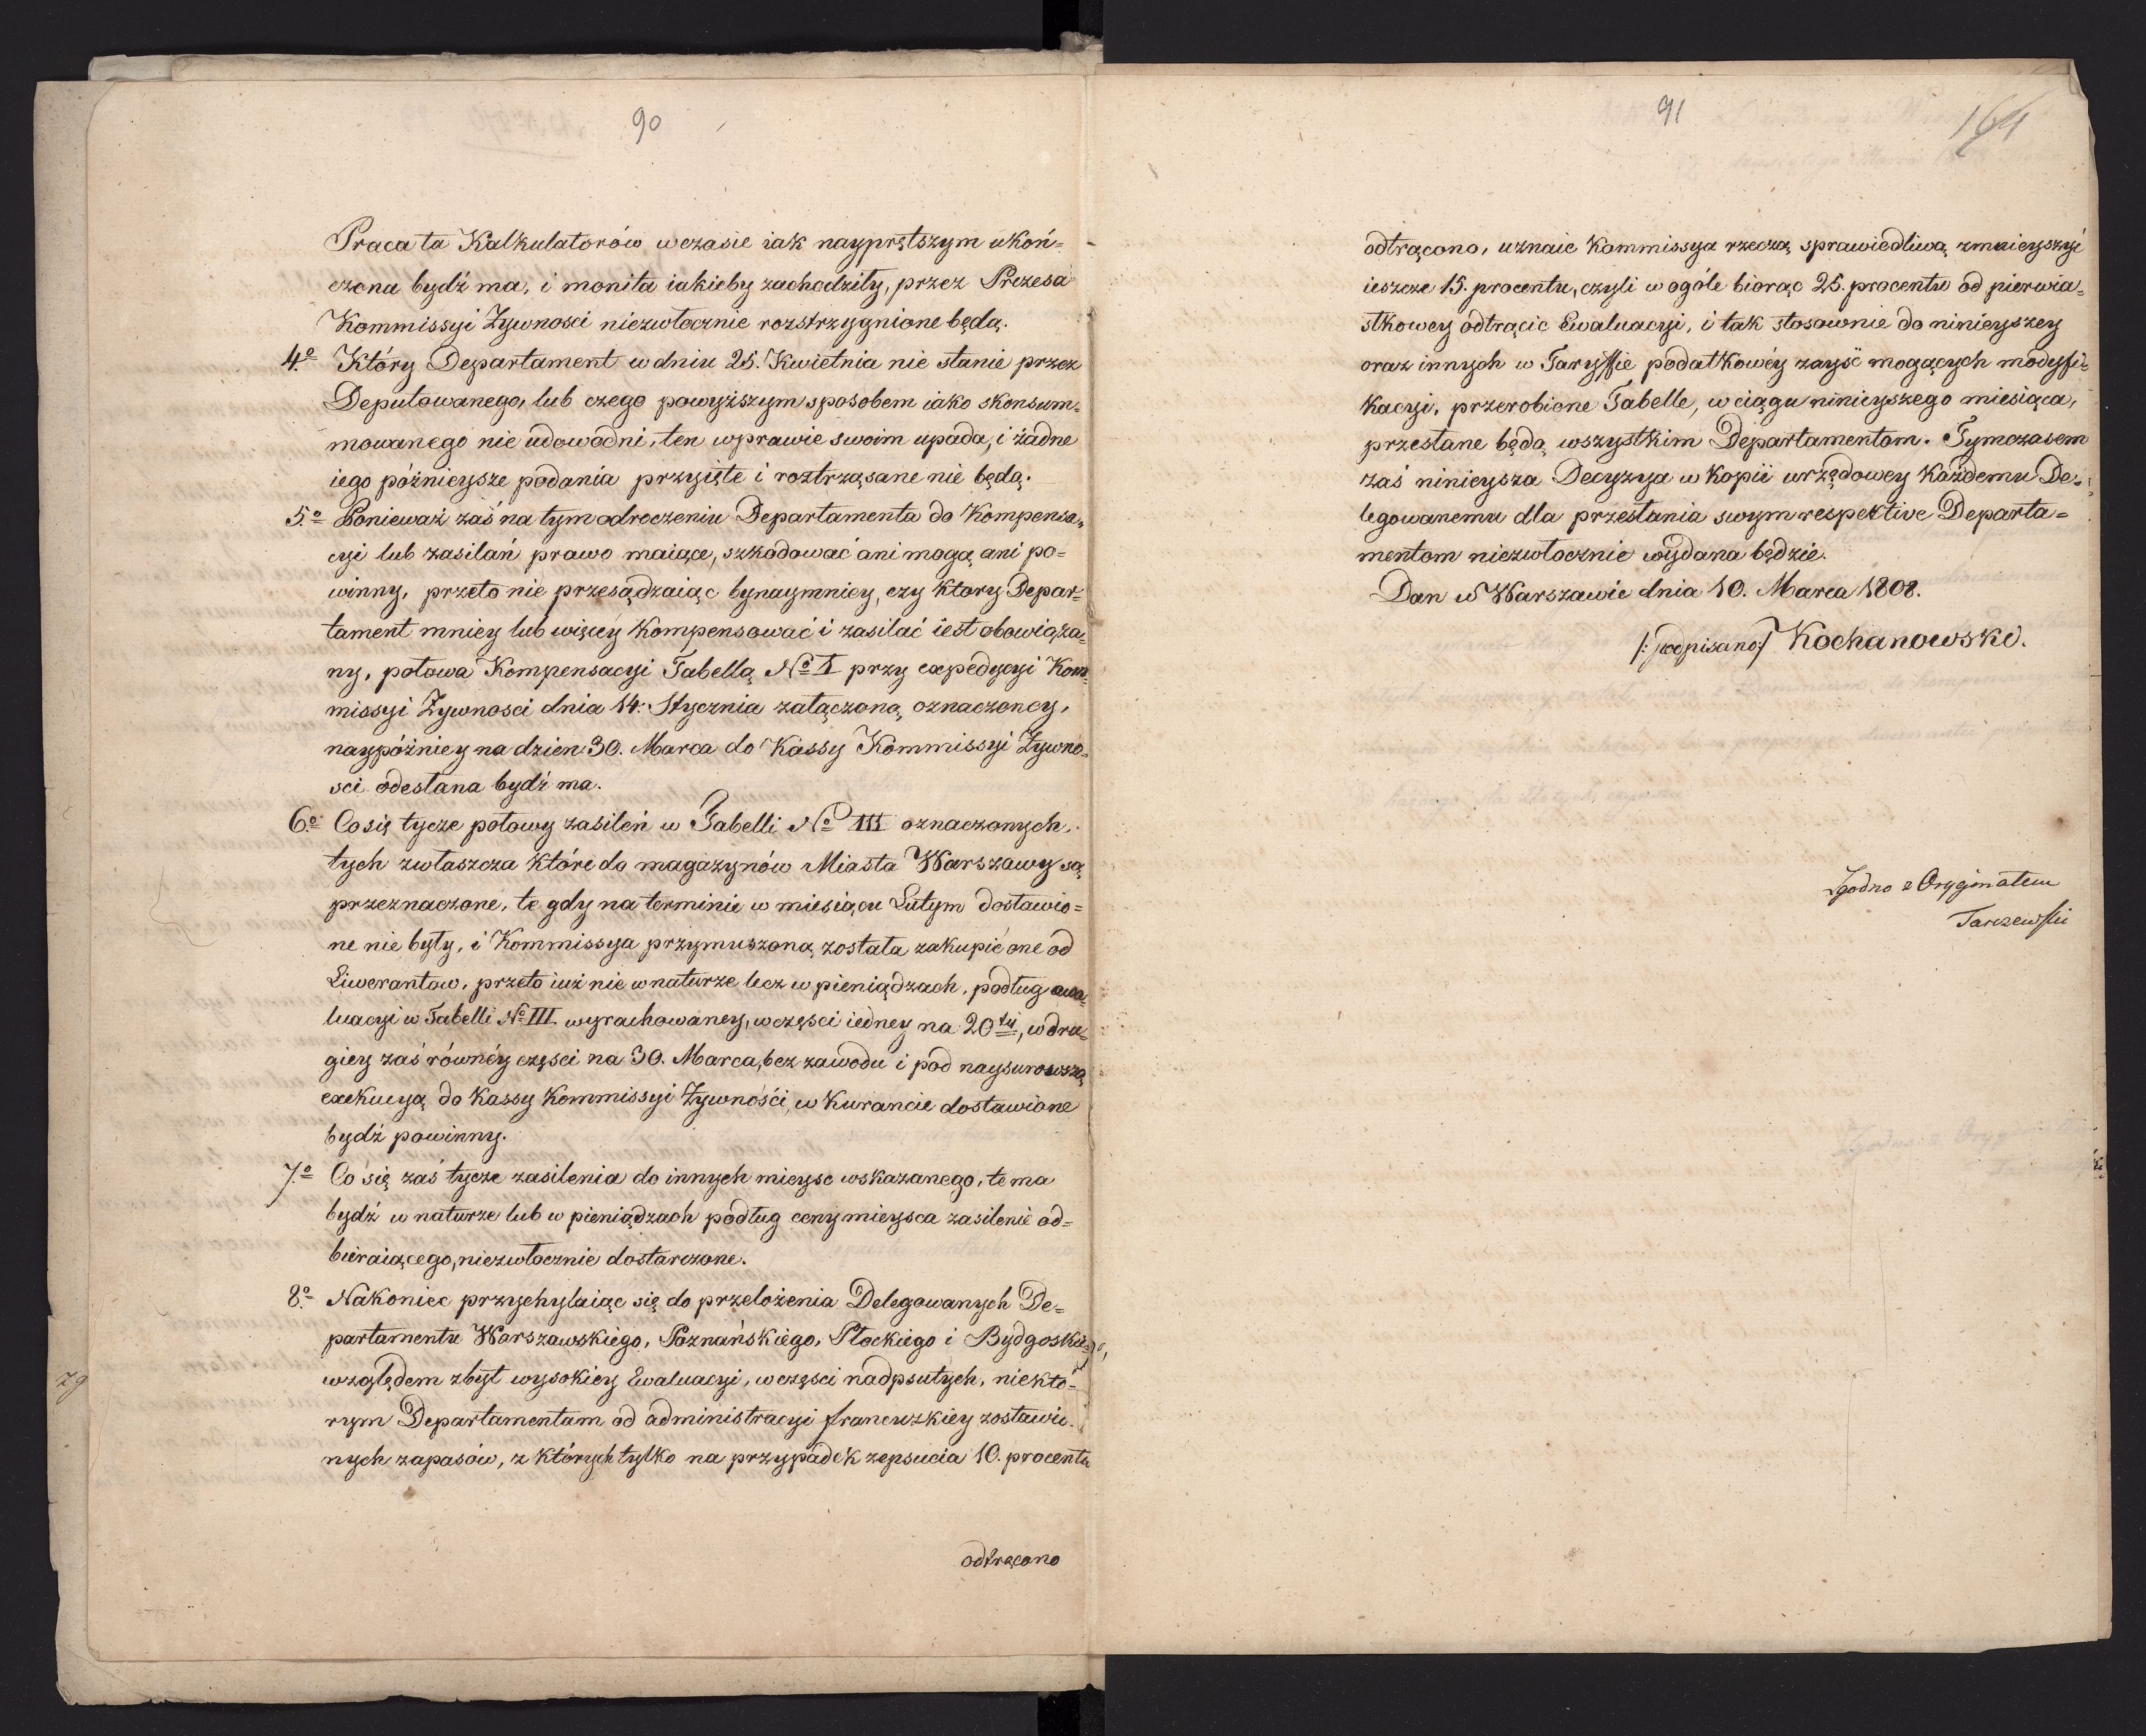 90
Praca ta Kalkulatorów w czasie iak nayprętszym ukoń=
czona bydź ma, i monita iakieby zachodziły, przez Prezesa
Kommissyi Zywnosci niezwłocznie rozstrzygnione będą.
4.o Który Departament w dniu 25. Kwietnia nie stanie przez
Deputowanego, lub czego powyższym sposobem iako skonsum=
mowanego nie udowodni, ten w prawie swoim upada, i żadne
iego późnieysze podania przyięte i roztrząsane nie będą.
5.o Ponieważ zaś na tym odroczeniu Departamenta do Kompensa=
cyi lub zasilań prawo maiące, szkodować ani mogą ani po=
winny, przeto nie przesądzaiąc bynaymniey, czy ktory Depar=
tament mniey lub więcéy Kompensować i zasilać iest obowiąza=
ny, połowa Kompensacyi Tabellą No I przy expedycyi Kom=
missyi Zywnosci dnia 14. Stycznia załączoną, oznaczoney,
naypóźniey na dzien 30. Marca do Kassy Kommissyi Zywno=
sci odesłana bydź ma.
6.o Co się tycze połowy zasileń w Tabelli No III oznaczonych,
tych zwłaszcza które do magazynów Miasta Warszawy są
przeznaczone, te gdy na terminie w miesiącu Lutym dostawio=
ne nie były, i Kommissya przymuszoną została zakupić one od
Liwerantow, przeto iuż nie w naturze lecz w pieniądzach, podług ewa=
luacyi w Tabelli No III. wyrachowaney, w częsci iedney na 20ty, w dru=
giey zaś równéy częsci na 30. Marca, bez zawodu i pod naysurowszą
exekucyą do Kassy Kommissyi Zywnośći, w Kurancie dostawione
bydź powinny.
7.o Co się zaś tycze zasilenia do innych mieysc wskazanego, te ma
bydź w naturze lub w pieniądzach podług ceny mieysca zasilenie od=
bieraiącego, niezwłocznie dostarczone.
8.o Nakoniec przychylaiąc się do przelożenia Delegowanych De=
partamentu Warszawskiego, Poznańskiego, Płockiego i Bydgoskiego,
względem zbyt wysokiey Ewaluacyi, w częsci nadpsutych, niektó=
rym Departamentam od administracyi francuzkiey zostawio=
nych zapasów, z których tylko na przypadek zepsucia 10. procentu
odtrącono
91
164
odtrącono, uznaie Kommissya rzeczą sprawiedliwą zmnieyszyć
ieszcze 15. procentu, czyli w ogóle biorąc 25. procentu od pierwia=
stkowey odtrącic Ewaluacyi, i tak stosownie do ninieyszey
oraz innych w Taryffie podatkowéy zayść mogących modyfi=
kacyi, przerobione Tabelle, w ciągu ninieyszego miesiąca,
przesłane będą wszystkim Departamentom. Tymczasem
zaś ninieysza Decyzya w Kopii urzędowey Każdemu De=
legowanemu dla przesłania swym respektive Departa=
mentom niezwłocznie wydana będzie.
Dan w Warszawie dnia 10. Marca 1808.
/:podpisano:/ Kochanowski.
Zgodno z Oryginałem
Tarczewski